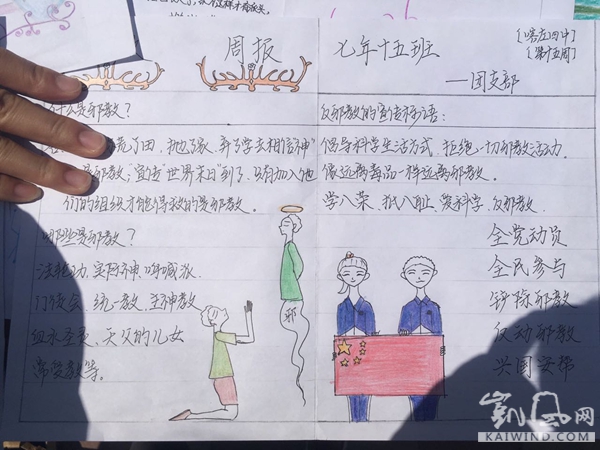 周报
七年十五班
〔喀左四中〕
〔第十五周〕
——团支部
什么是邪教？
荒了田、抛了家、弃了学去相信"神"
是邪教；宣传"世界末日"到了，只有加入他
们的组织才能得救的是邪教。
哪些是邪教？
法轮功、实际神、呼喊派、
门徒会、统一教、主神教
血水圣灵、天父的儿女
常受教等。
邪
反邪教的宣传标语：
倡导科学生活方式，拒绝一切邪教活动。
像远离毒品一样远离邪教。
学八荣、抵八耻、爱科学、反邪教。
全党动员
全民参与
铲除邪教
反动邪教
兴国安帮
凯风网
KAIWIND.COM